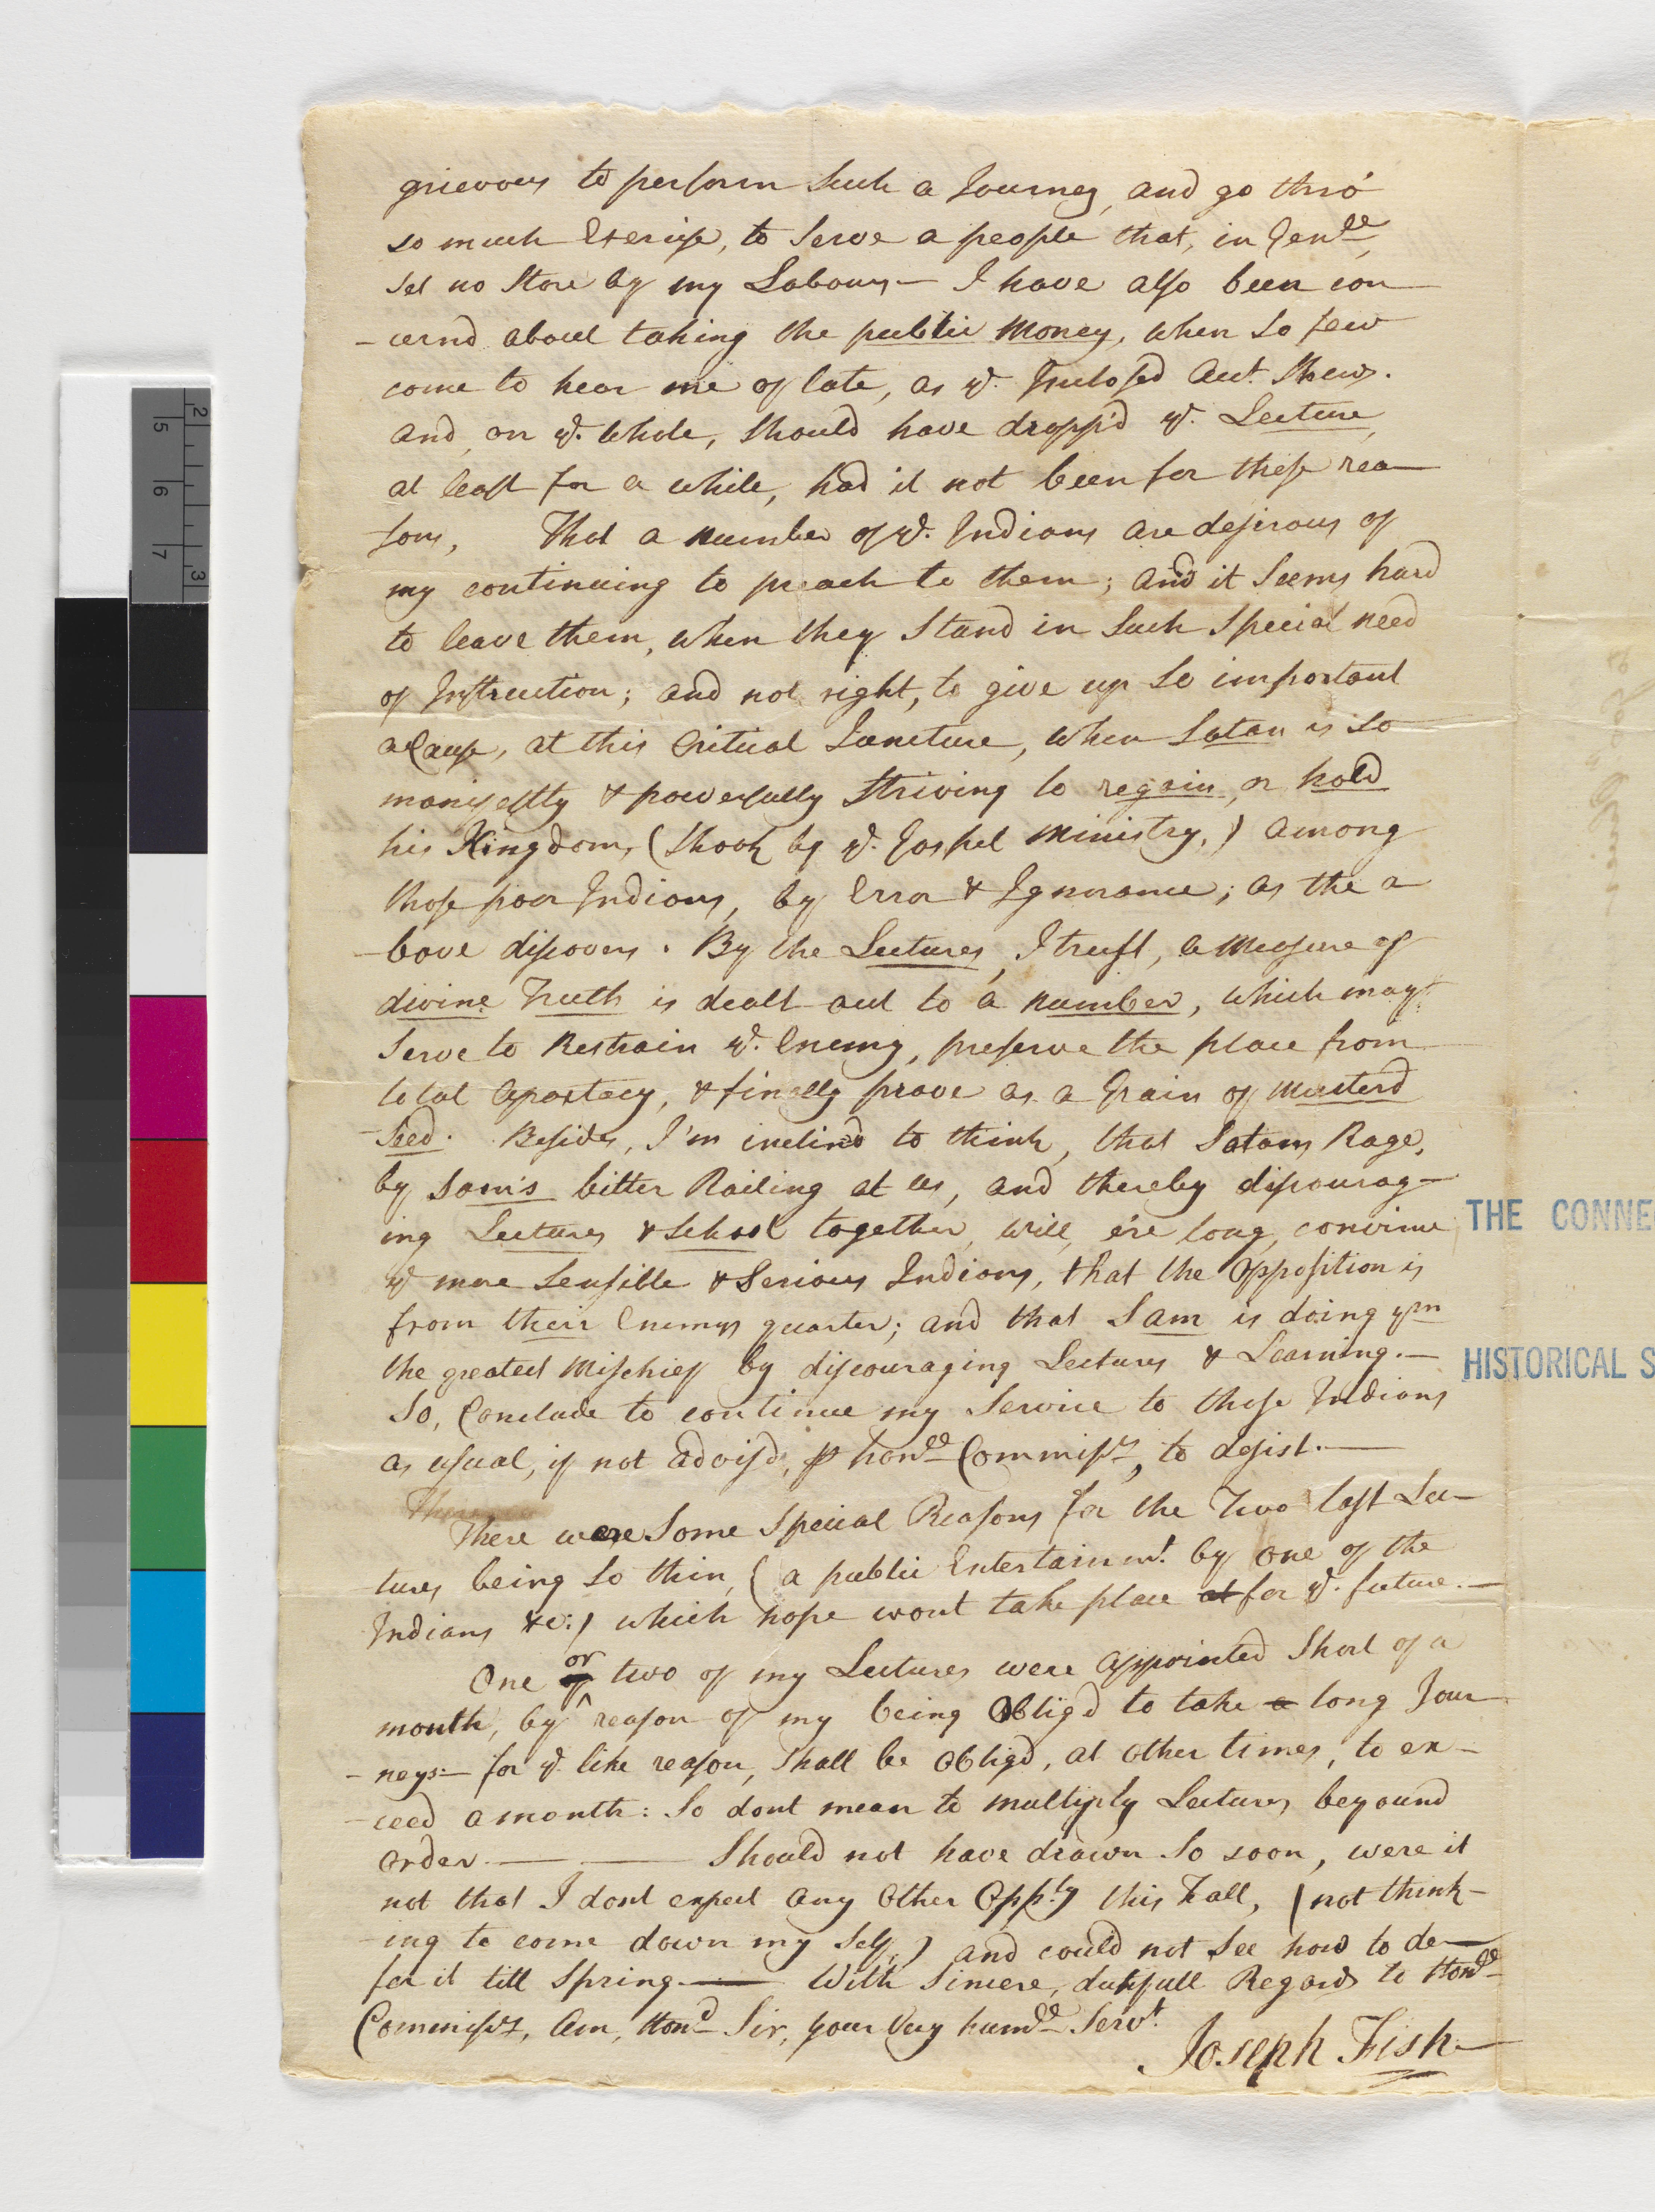 grievous to perform Such a Journey, and go thro'
so much Exercise, to Serve a people that, in Genll,
Set no Store by my Labours — I have also been con
-cernd about taking the public Money, when So few
come to hear me of late, as ye. Inclosed Acct. Shews.
and, on ye. whole, Should have dropp'd ye. Lecture,
at least for a while, had it not been for these rea-
sons, That a number of ye. Indians are desirous of
my continuing to preach to them; and it Seems hard
to leave them, when they Stand in Such Special need
of Instruction; and not right, to give up So important
a Cause, at this Critical Juncture, when Satan is So
manifestly & powerfully Striving to regain, or hold
his Kingdom, (Shook by ye. Gospel Ministry,) among
those poor Indians, by Error & Ignorance; as the a
-bove discovers. By the Lectures, I trust, a Measure of
divine Truth is dealt out to a number, which may
Serve to Restrain ye. Enemy, preserve the place from
total Apostacy, & finally prove as a Grain of Musterd
Seed. Besides, I'm inclin'd to think, that Satans Rage,
by Sam's bitter Railing at us, and thereby discourag-
ing Lectures & School together, will, e're long, convince
ye more Sensible & Serious Indians, that the Opposition is
from their Enemys quarter; and that Sam is doing ym
the greatest Mischief by discouraging Lectures & Learning. —
So, Conclude to continue my Service to these Indians
as usual, if not advis'd, by hond Commissrs, to desist. —
There were Some Special Reasons for the Two last Lec-
tures being So thin, (a public Entertainmt. by One of the
Indians &c:) which hope wont take place at for ye. future. —
One of or two of my Lectures were appointed Short of a
month, by reason of my being Oblig'd to take a long Jour
-neys — for ye. like reason, Shall be Obligd, at Other times, to ex-
-ceed a month: So dont mean to multiply Lectures beyound
Order. — — Should not have drawn So soon, were it
not that I dont expect any Other Oppty this Fall, (not think-
-ing to come down my Self,) and could not See how to de-
fer it till Spring. — With Sincere, dutifull Regards to Hond
Commissrs, Am, Hond Sir, your Very humble Servt.
Joseph Fish
THE CONNE
HISTORICAL S
5 6 7
2 3